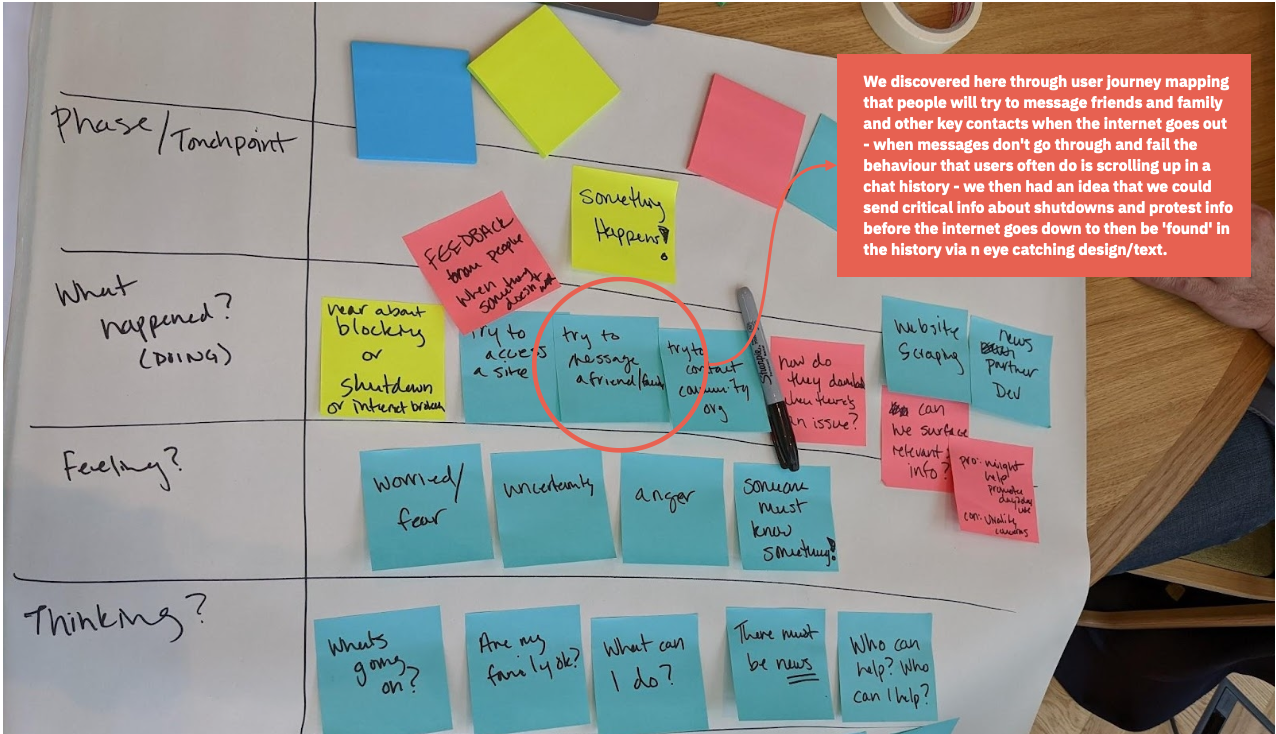 We discovered here through user journey mapping
that people will try to message friends and family
and other key contacts when the internet goes out
- when messages don't go through and fail the
behaviour that users often do is scrolling up in a
chat history - we then had an idea that we could
send critical info about shutdowns and protest info
before the internet goes down to then be 'found' in
the history via n eye catching design/text.
Phase/Touchpoint
Something
Happens!
FEEDBACK
from people
when
something
doesn't
What
happened?
(DOING)
hear about
blocking
or
shutdown
or internet broken
Try to
access
a site
try to
message
a friend/
try to
contact
community
org
Sharpie
how do
they
when there's
an issue?
website
Scraping
news
partner
Dev
can
we surface
relevant
info?
pro: might
help
promote
day2day
use
con: virality
concerns
Feeling?
worried/
fear
uncertainty
anger
someone
must
know
something!
Thinking?
Whats
going
on?
Are my
family ok?
What can
I do?
There must
be news
Who can
help? Who
can I help?